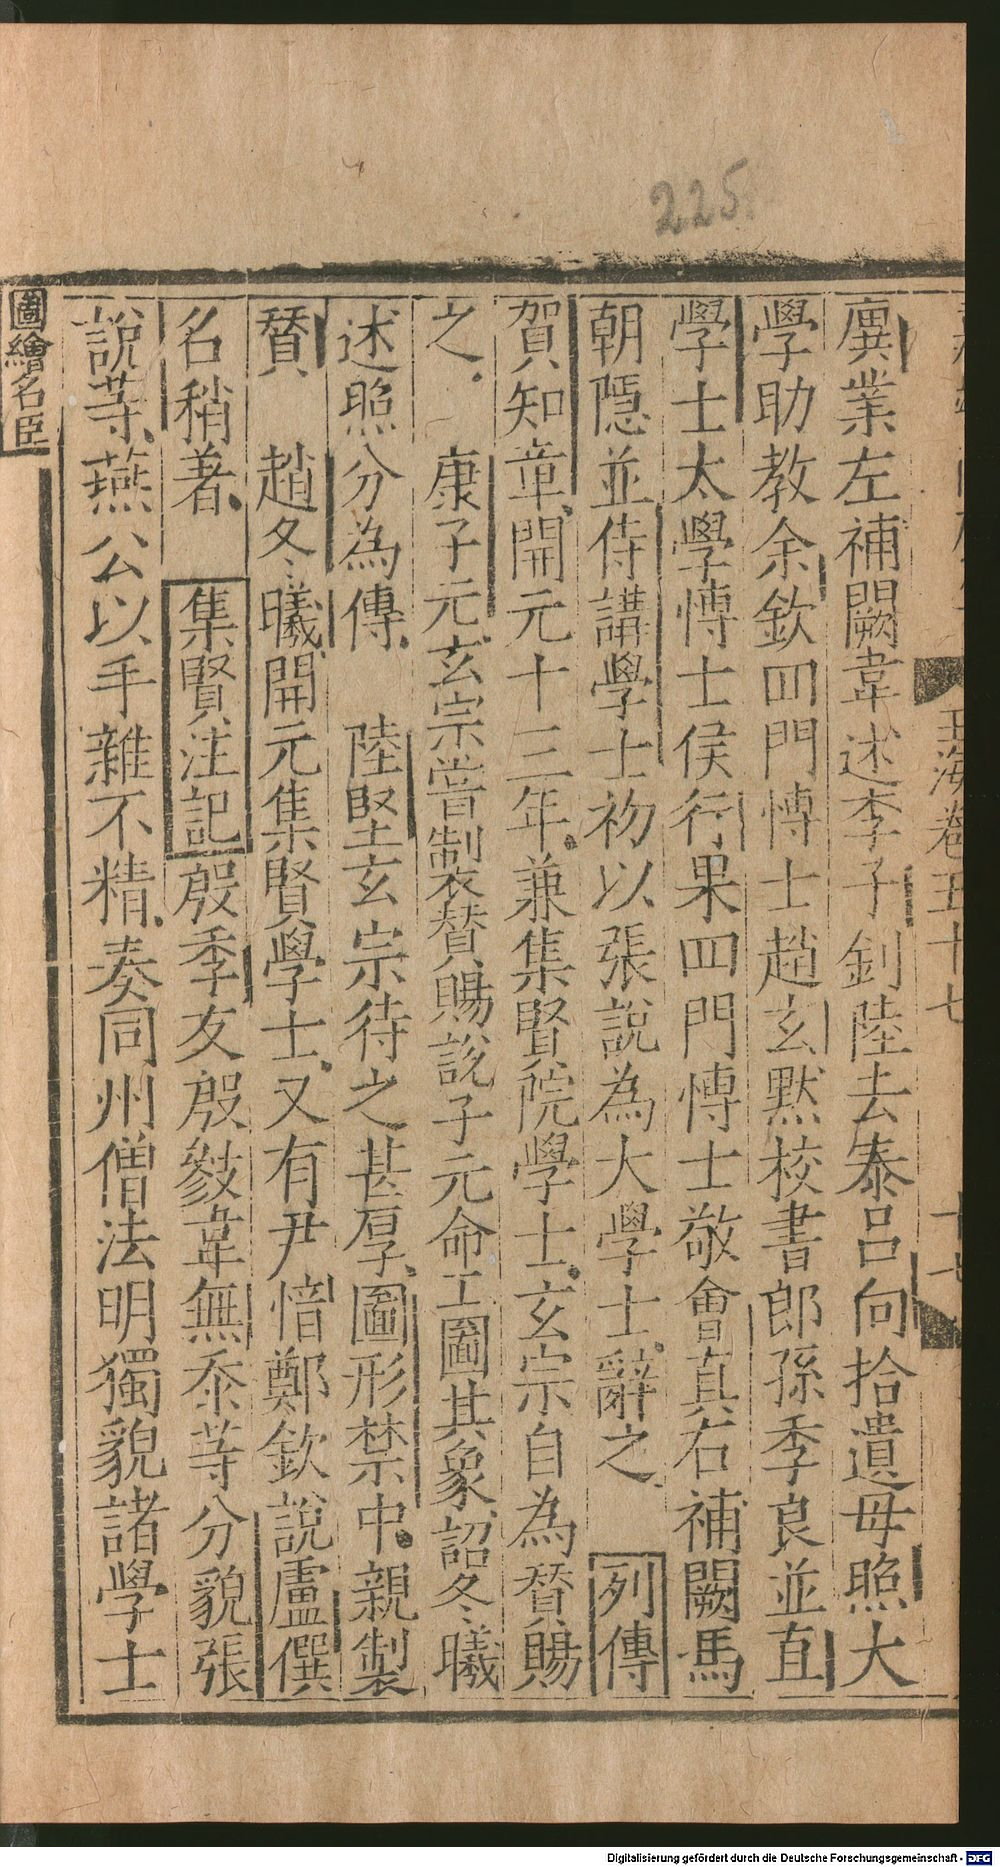 225
玉海卷五十七
十七
廙業左補闕韋述李子釗陸去泰呂向拾遺毋煚大
學助教余欽四門博士趙玄默校書郎孫季良並直
學士太學博士侯行果四門博士敬會真右補闕馮
朝隱並侍講學士初以張說為大學士辭之 列傳
賀知章開元十三年兼集賢院學士玄宗自為贊賜
之 康子元玄宗嘗製贊賜說子元命工圖其象詔冬曦
述煚分為傳 陸堅玄宗待之甚厚圖形禁中親製
贊 趙冬曦開元集賢學士又有尹愔鄭欽說盧僎
名稍著 集賢注記殷季友殷㪥韋無忝等分貌張
說等燕公以手雜不精奏同州僧法明獨貌諸學士
圖繪名臣
Digitalisierung gefördert durch die Deutsche Forschungsgemeinschaft - DFG